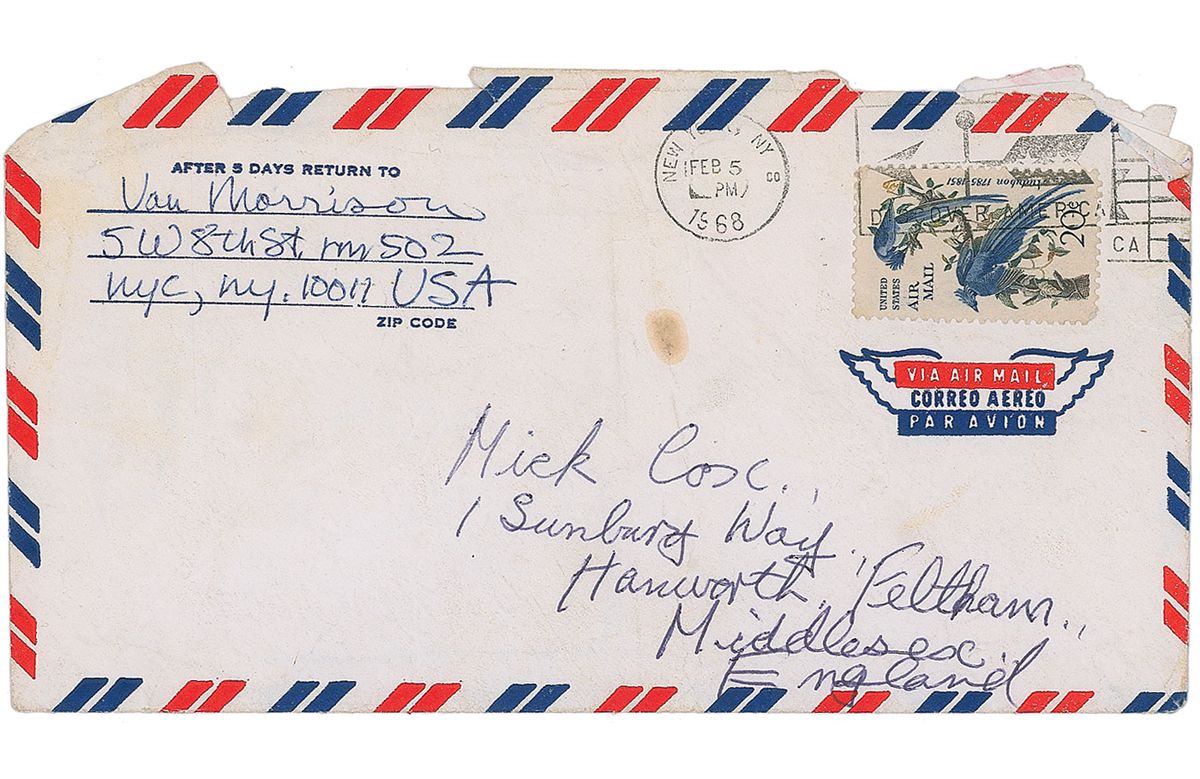 AFTER 5 DAYS RETURN TO
Van Morrison
5 W 8th St. rm 502
nyc, ny. 10011 USA
ZIP CODE
NEW YORK, NY
FEB 5
PM
1968
DISCOVER AMERICA
CA
Audubon 1785-1851
20c
UNITED
STATES
AIR
MAIL
VIA AIR MAIL
CORREO AEREO
PAR AVION
Mick Cox.,
1 Sunbury Way,
Hanworth, Feltham.,
Middlesex.
England